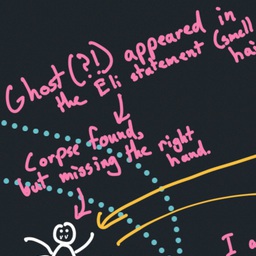 Ghost(?!) appeared in
the Eli statement (smell
hai
Corpse found,
but missing the right
hand.
I a